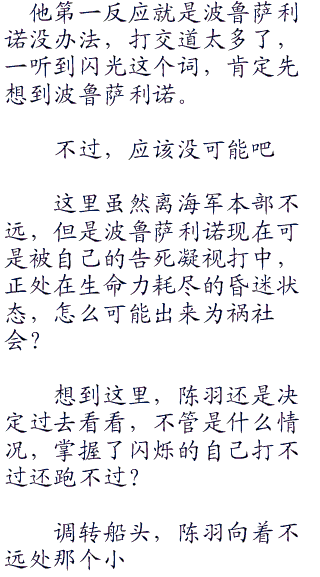 他第一反应就是波鲁萨利
诺没办法，打交道太多了，
一听到闪光这个词，肯定先
想到波鲁萨利诺。
不过，应该没可能吧
这里虽然离海军本部不
远，但是波鲁萨利诺现在可
是被自己的告死凝视打中，
正处在生命力耗尽的昏迷状
态，怎么可能出来为祸社
会？
想到这里，陈羽还是决
定过去看看，不管是什么情
况，掌握了闪烁的自己打不
过还跑不过？
调转船头，陈羽向着不
远处那个小